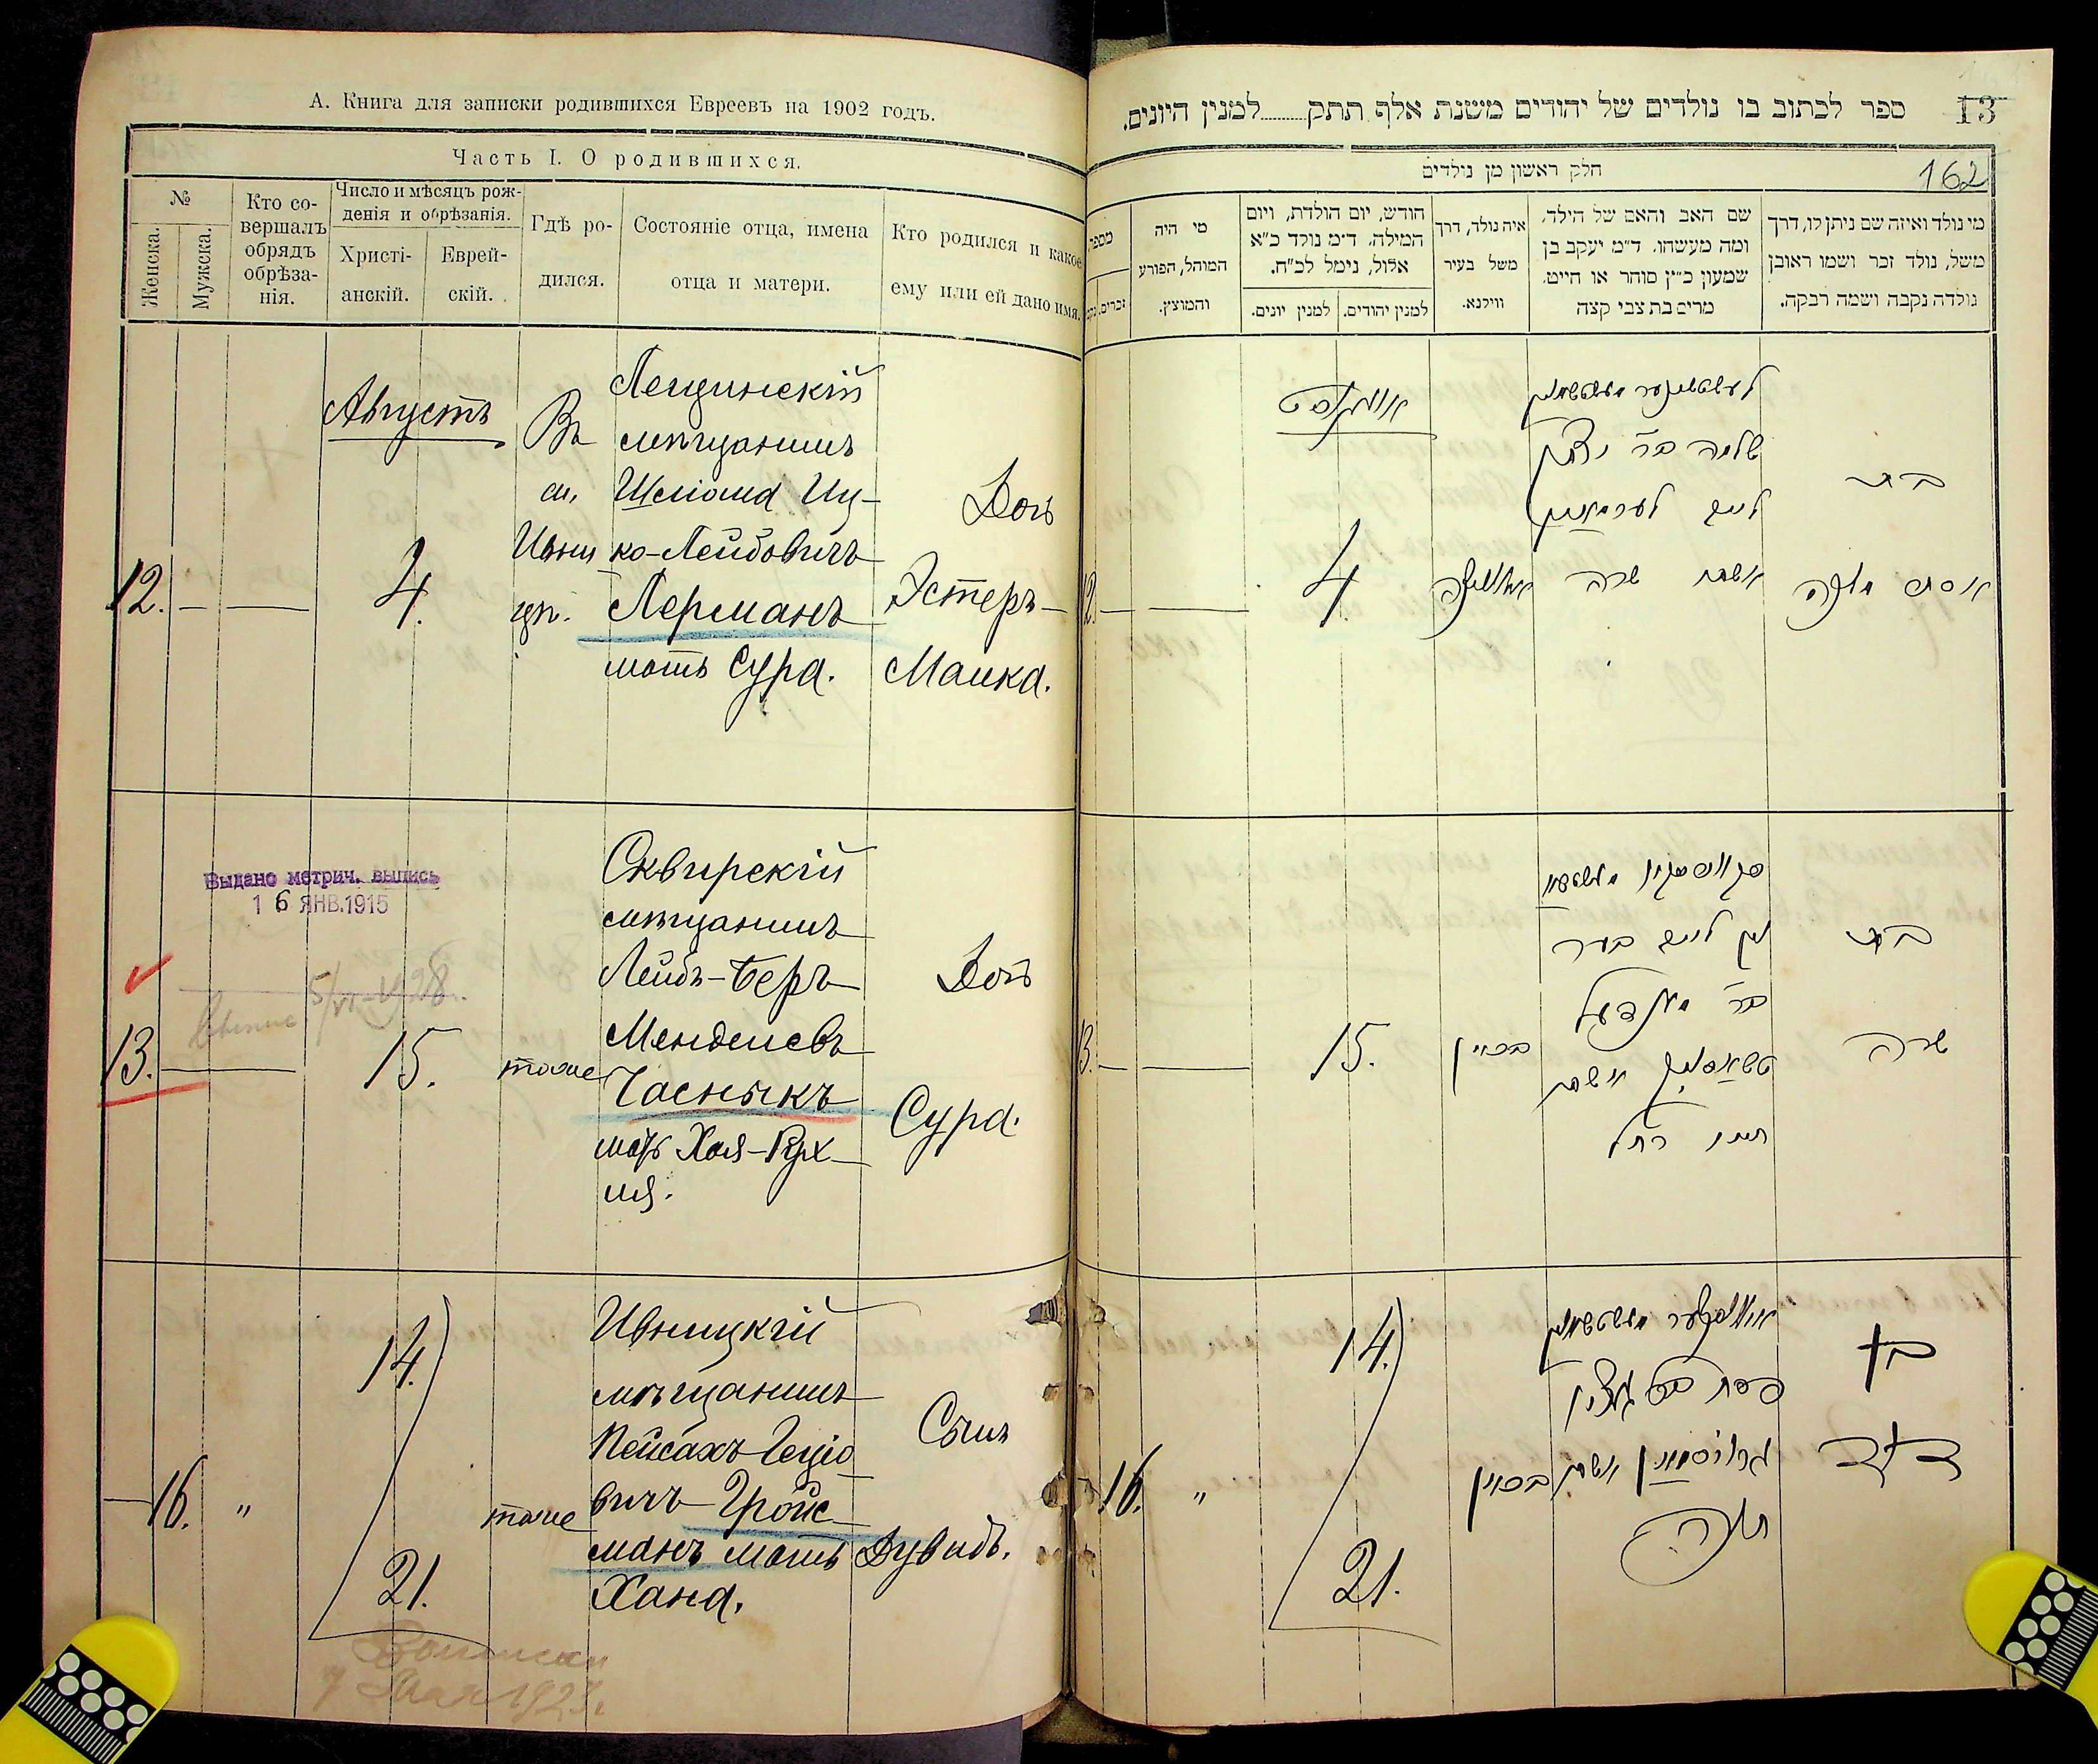 А. Книга для записки родившихся Евреевъ на 1902 годъ.
Часть I. О родившихся.
№
Женска.
Мужска.
Кто со-
вершалъ
обрядъ
обрѣза-
нія.
Число и мѣсяцъ рож-
денія и обрѣзанія.
Христі-
анскій.
Еврей-
скій.
Гдѣ ро-
дился.
Состояніе отца, имена
отца и матери.
Кто родился и какое
ему или ей дано имя.
12.
Августъ
4.
Въ
м.
Ивни
цѣ.
Лещинскій
мѣщанинъ
Шліома Иц-
ко-Лейбовичъ
Лерманъ
мать Сура.
Дочь
Эстеръ-
Малка.
Выдано метрич. выпись
16 ЯНВ.1915
13.
15.
тоже
Сквирскій
мѣщанинъ
Лейбъ-Беръ
Менделевъ
Часныкъ
мать Хая-Рух
ля.
Дочь
Сура.
16.
"
14.
21.
тоже
Ивницкій
мѣщанинъ
Пейсахъ Гецío
вичъ Гройс-
манъ мать
Хана.
Сынъ
Дувидъ.
13
ספר לכתוב בו נולדים של יהודים משנת אלף תתק........למנין היונים.
162
חלק ראשון מן נולדים
מי נולד ואיזה שם ניתן לו, דרך
משל, נולד זכר ושמו ראובן
נולדה נקבה ושמה רבקה.
שם האב והאם של הילד,
ומה מעשהו. ד״מ יעקב בן
שמעון כ״ץ סוחר או חייט.
מרים בת צבי קצה
איה נולד, דרך
משל בעיר
ווילנא.
חודש, יום הולדת, ויום
המילה. ד״מ נולד כ״א
אלול, נימל לכ״ח.
למנין יהודים.
למנין יונים.
מי היה
המוהל, הפורע
והמוצץ.
מספר
זכרים.
12.
4.
שלמה בר יצחק
לייב לערמאן
אשתו שרה
בת
אסתר מלכה
13.
15.
לייב בער
בר מענדעל
טשאסניק אשתו
חיה רחל
בת
שרה
16.
"
14.
21.
פסח בר געציל
גרויסמאן אשתו
חנה
בן
דוד